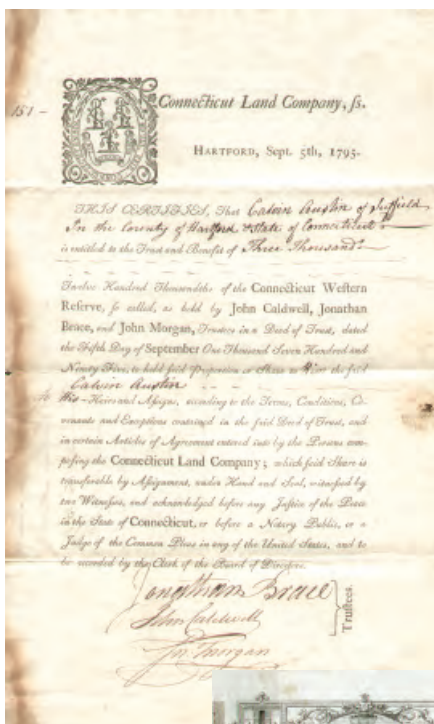 151 –
Connecticut Land Company, ſs.
HARTFORD, Sept. 5th, 1795.
THIS CERTIFIES, That Calvin Austin of Suffield
In the County of Hartford & State of Connecticut
is entitled to the Trust and Benefit of Three Thousand
Twelve Hundred Thousandths of the Connecticut Western
Reserve, ſo called, as held by John Caldwell, Jonathan
Brace, and John Morgan, Trustees in a Deed of Trust, dated
the Fifth Day of September One Thousand Seven Hundred and
Ninety Five, to hold ſaid Proportion or Share to Him the ſaid
Calvin Austin
His – Heirs and Aſsigns, according to the Terms, Conditions, Co-
venants and Exceptions contained in the ſaid Deed of Trust, and
in certain Articles of Agreement entered into by the Persons com-
poſing the Connecticut Land Company; which ſaid Share is
transferable by Aſsignment, under Hand and Seal, witneſsed by
two Witneſses, and acknowledged before any Justice of the Peace
in the State of Connecticut, or before a Notary Public, or a
Judge of the Common Pleas in any of the United States, and to
be recorded by the Clerk of the Board of Directors.
Jonathan Brace
John Caldwell
Jn. Morgan
Trustees.